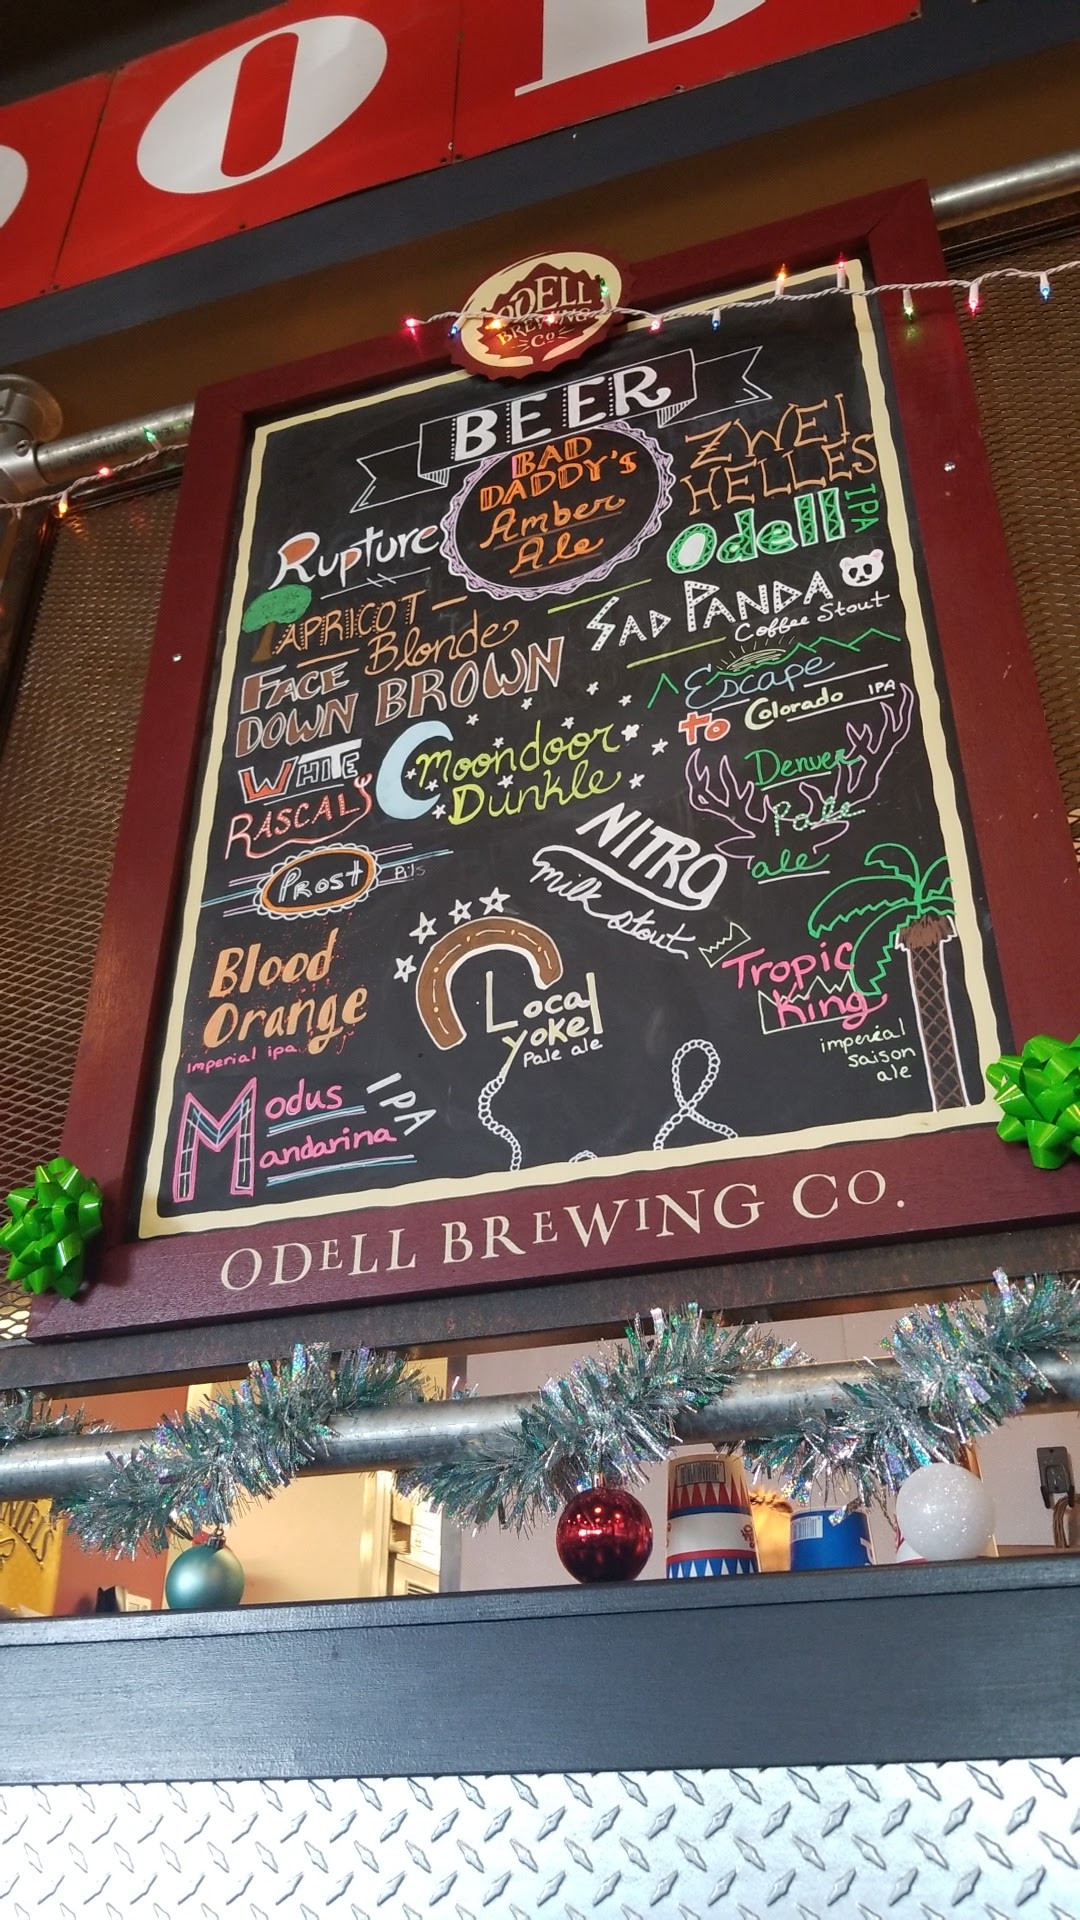 ODELL
BREWING
Co
BEER
BAD
DADDY'S
Amber
Ale
ZWEI
HELLES
Rupture
Odell IPA
APRICOT
Blonde
SAD PANDA
Coffee Stout
FACE
DOWN BROWN
Escape
to Colorado IPA
WHITE
RASCAL
Moondoor
Dunkle
Denver
Pale
ale
PROST Pils
NITRO
milk stout
Blood
Orange
Imperial ipa
Local
Yokel
Pale ale
Tropic
King
imperial
saison
ale
Modus
Mandarina
IPA
ODELL BREWING CO.